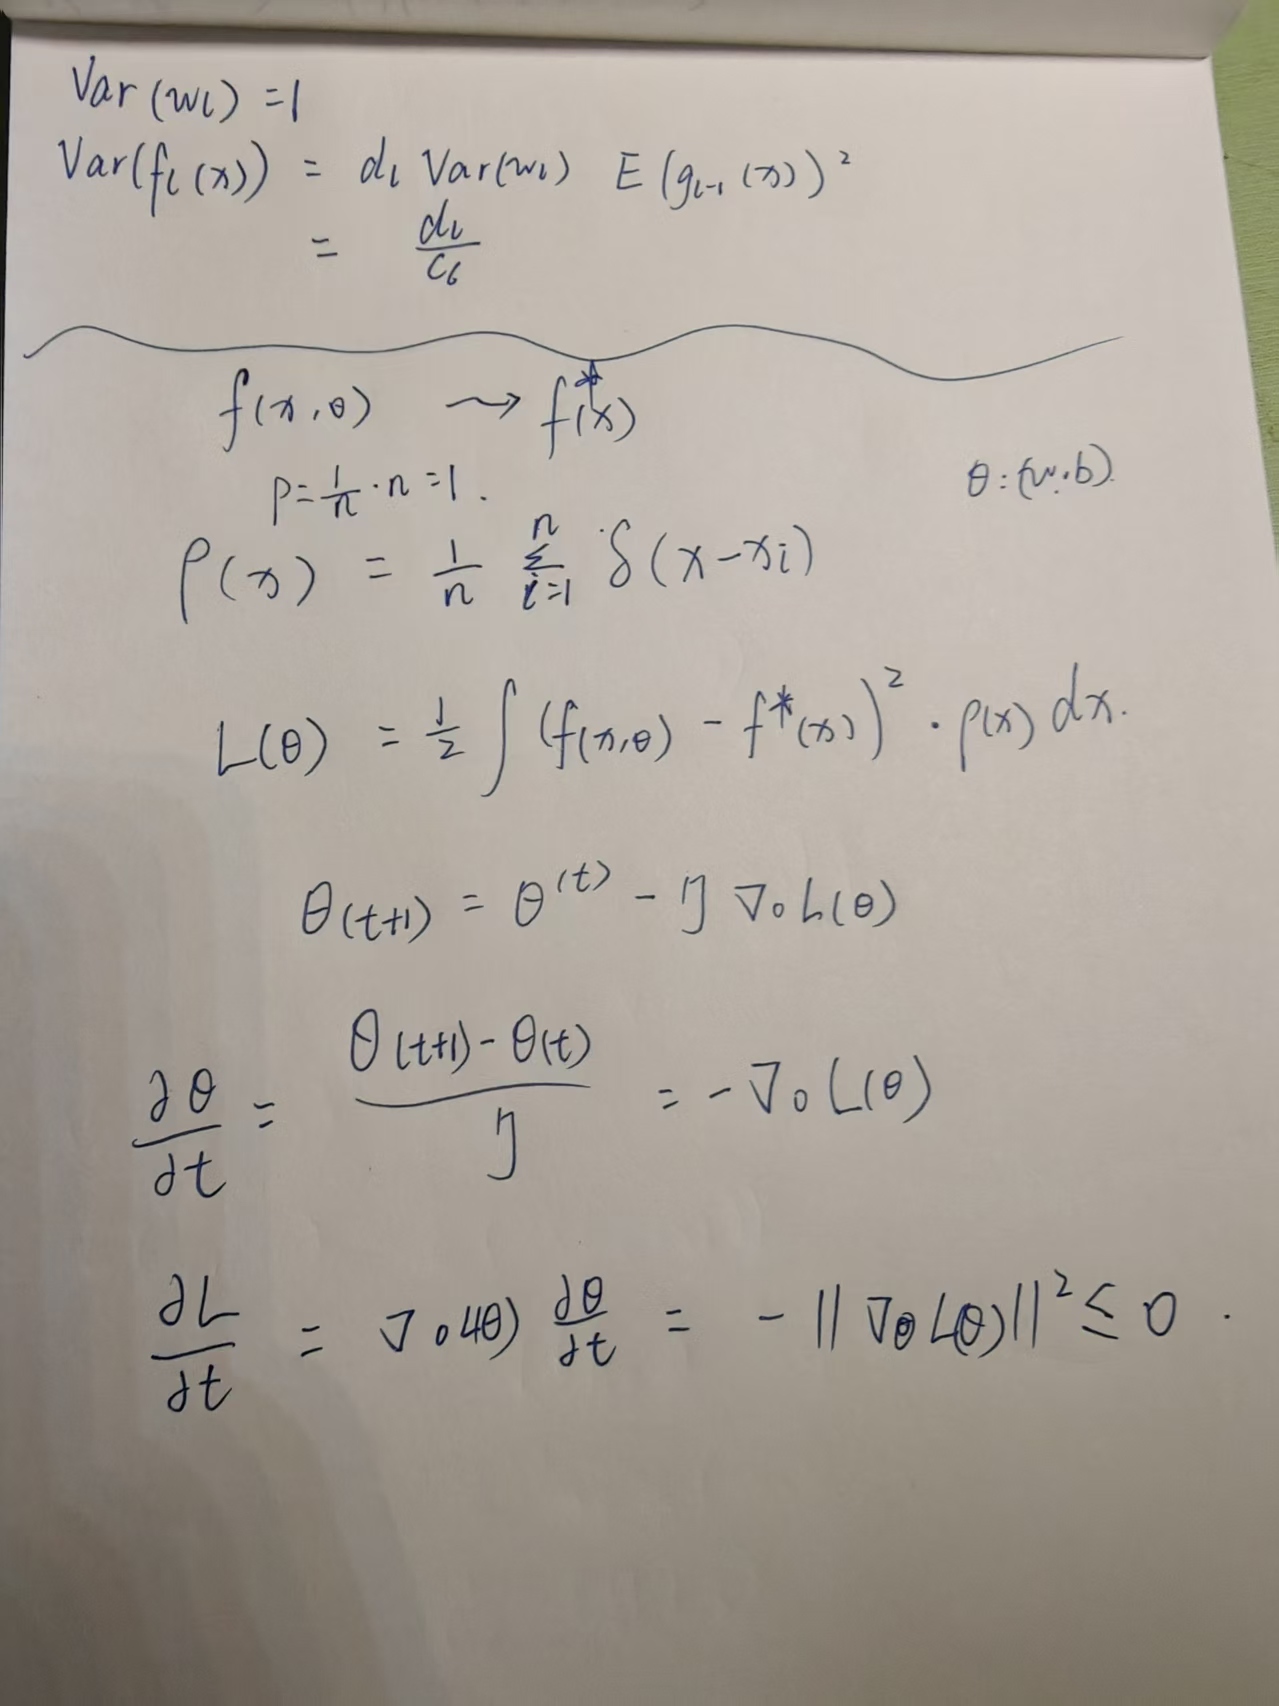 Var(w_l) = 1
Var(f_l(x)) = d_l Var(w_l) E(g_{l-1}(x))²
= d_l / c_6
f(x,θ) ⇝ f*(x)
P = 1/n · n = 1.
θ:(w.b)
ρ(x) = 1/n Σ_{i=1}^{n} δ(x-x_i)
L(θ) = 1/2 ∫ (f(x,θ) - f*(x))² · ρ(x) dx.
θ(t+1) = θ^{(t)} - η ∇_θ L(θ)
∂θ/∂t = (θ(t+1) - θ(t)) / η = -∇_θ L(θ)
∂L/∂t = ∇_θ L(θ) ∂θ/∂t = -||∇_θ L(θ)||² ≤ 0.